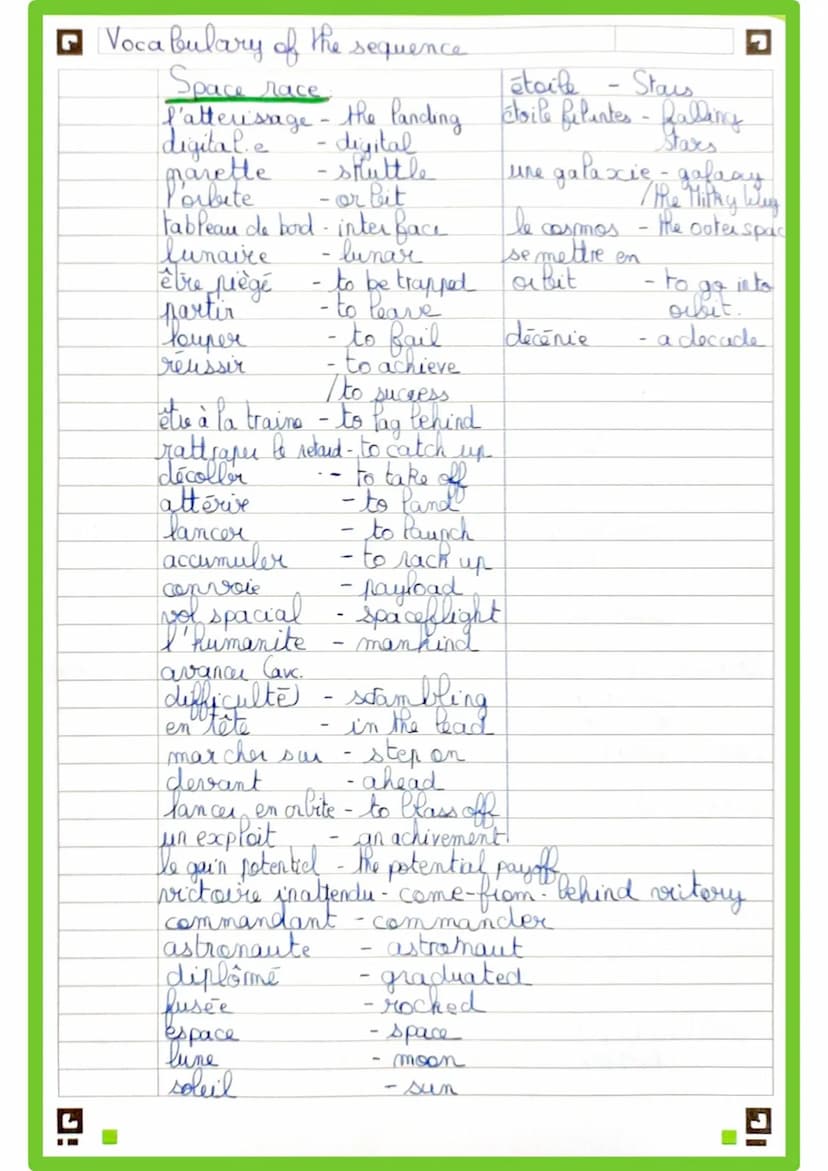 Vocabulary of the sequence
Space race
l'atterissage - the landing
digital.e - digital
navette - shuttle
l'orbite - orbit
tableau de bord - interface
lunaire - lunar
être piègé - to be trapped
partir - to leave
louper - to fail
réussir - to achieve
/to success
être à la traine - to lag behind
rattraper le retard - to catch up
décoller - to take off
attérir - to land
lancer - to launch
accumuler - to rack up
convoie - payload
vol spacial - spaceflight
l'humanite - mankind
avancer (avc.
difficulté) - scambling
en tête - in the lead
marcher sur - step on
devant - ahead
lancer en orbite - to blass off
un exploit - an achivement
le gain potentiel - the potential payoff
victoire inattendu - come-from-behind vritory
commandant - commander
astronaute - astronaut
diplômé - graduated
fusée - rocked
espace - space
lune - moon
soleil - sun
étoile - Stars
étoile filantes - falling
stars
une galaxie - galaxy
/the Milky Way
le cosmos - the outer spac
se mettre en
orbit - to go into
orbit.
décénie - a decade